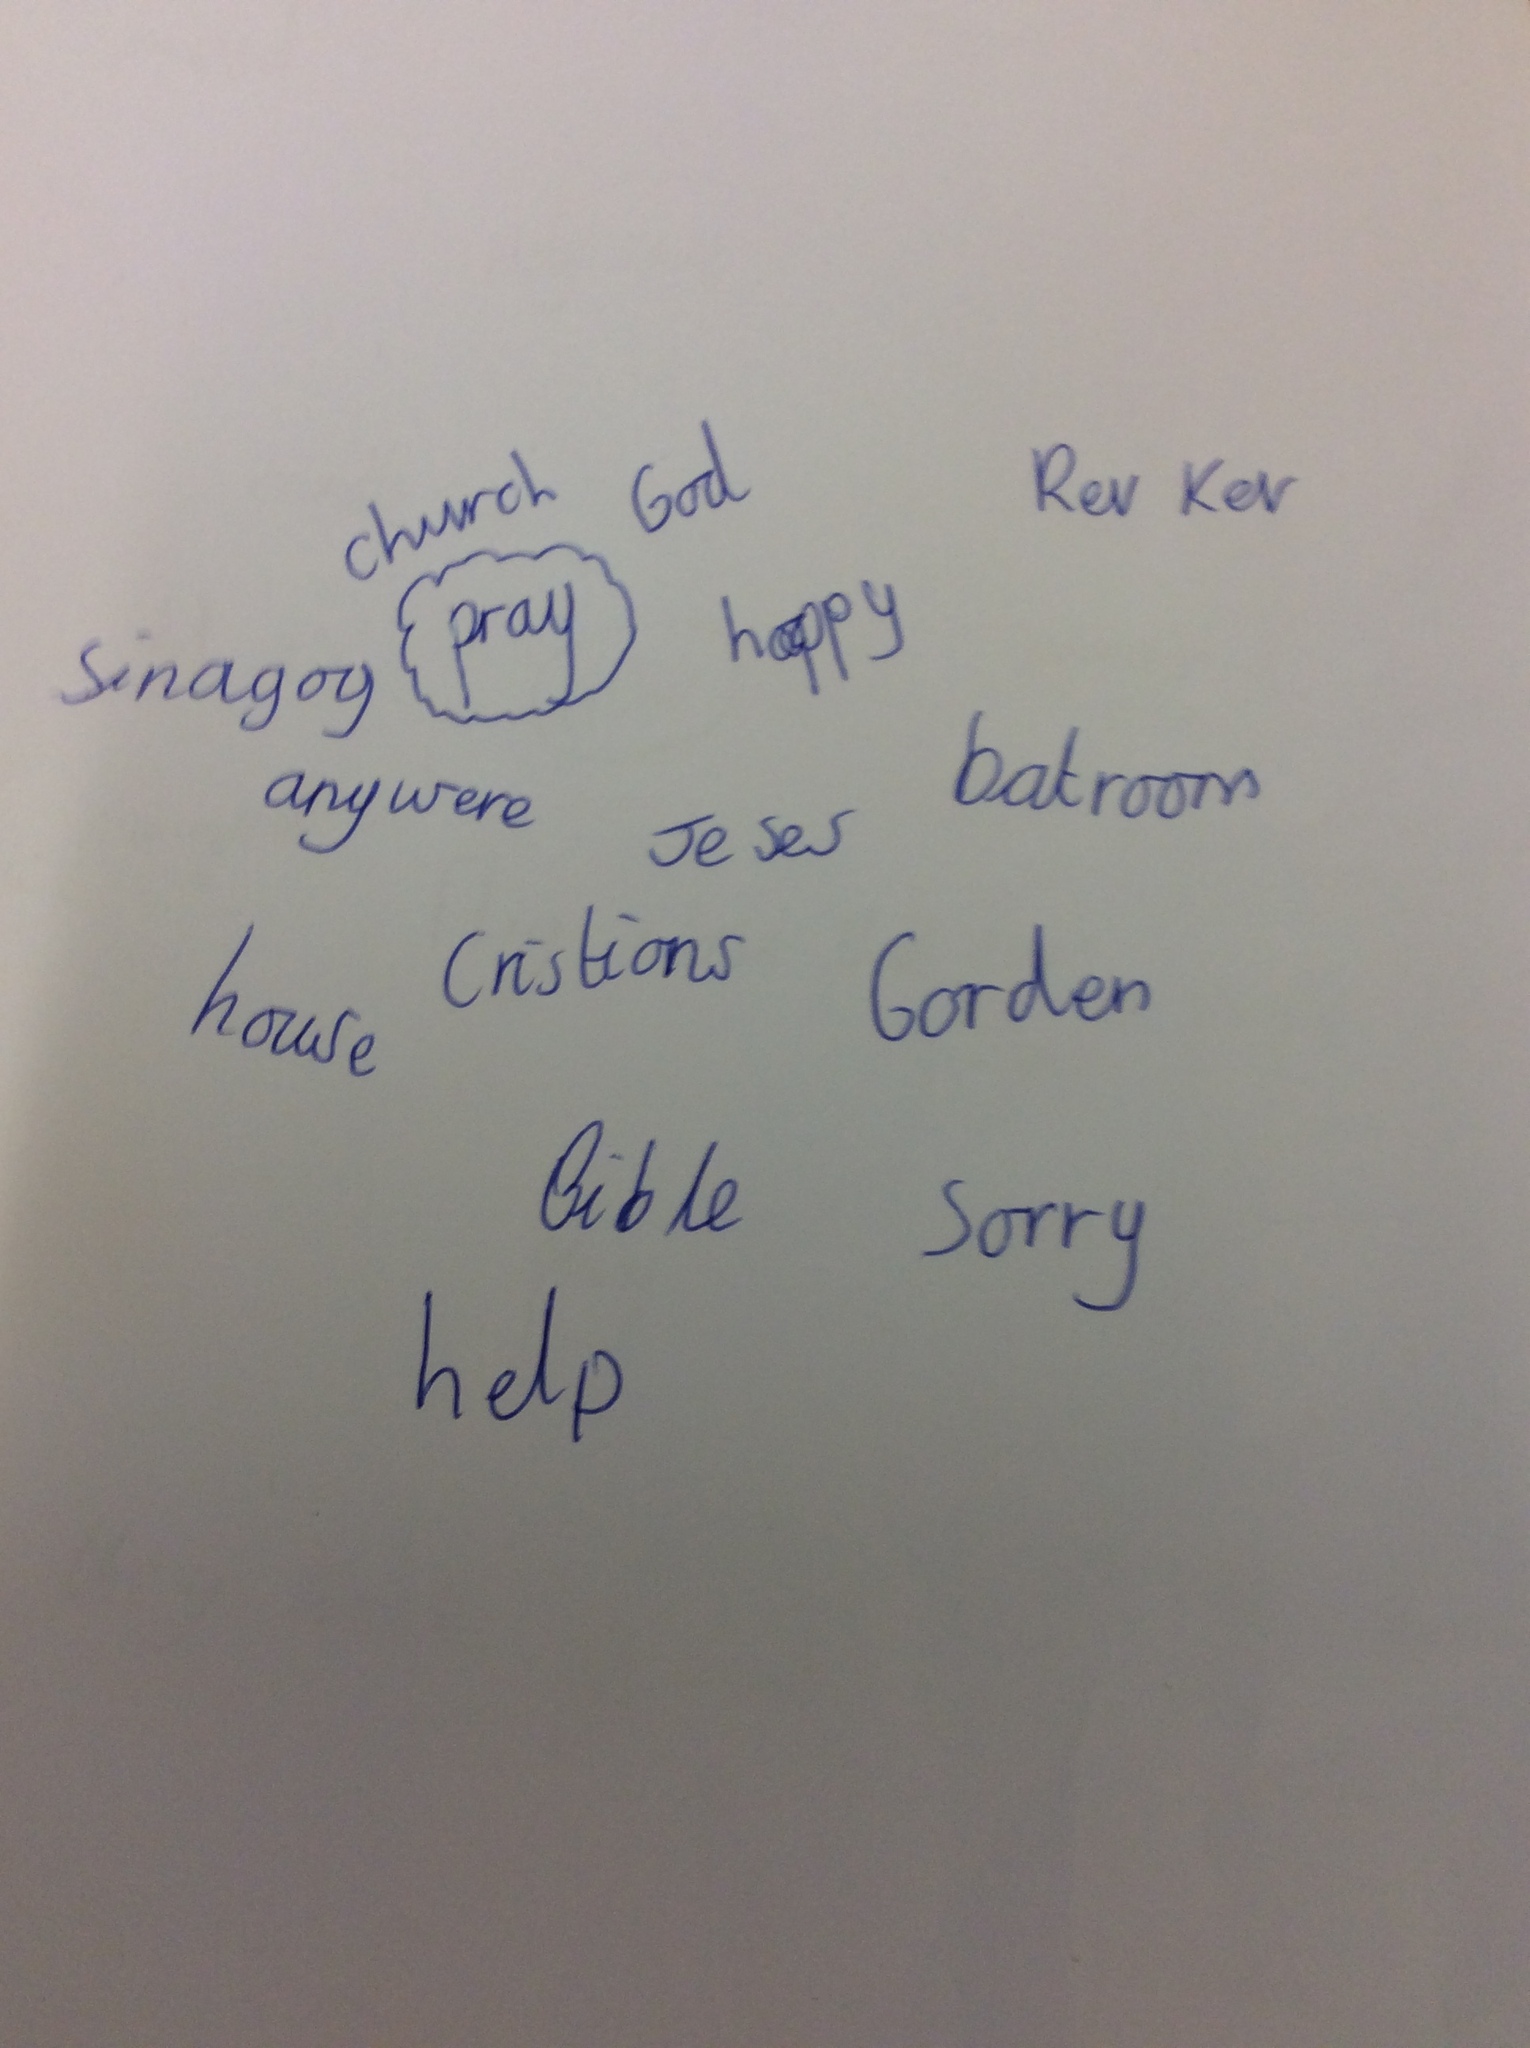 church God Rev Kev
pray happy
Sinagog
anywere Jeses batroom
house Cristions Gorden
Bible Sorry
help